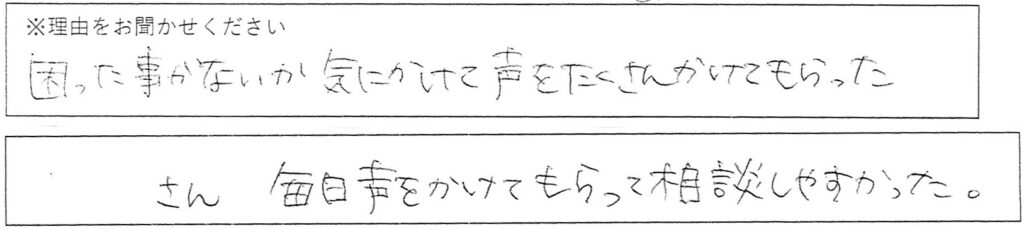 ※理由をお聞かせください
困った事がないか気にかけて声をたくさんかけてもらった
さん 毎日声をかけてもらって相談しやすかった。